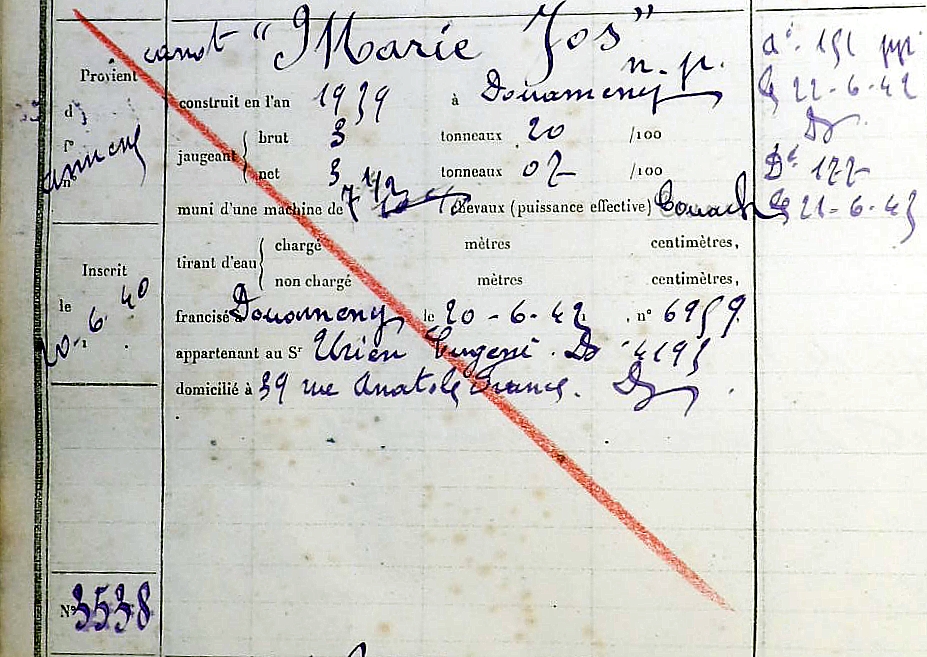 canot "Marie Jos"
n. p.
Provient
d
construit en l'an 1939 à Douarnenez
jaugeant { brut 3 tonneaux 20 /100
net 3 tonneaux 02 /100
n°
muni d'une machine de 7 1/2 chevaux (puissance effective) Couach
tirant d'eau { chargé mètres centimètres,
non chargé mètres centimètres,
Inscrit
le 20-6.40
francisé Douarnenez le 20-6-42, n° 6959
appartenant au Sr Urien Eugène. Dz 4195
domicilié à 39 rue Anatole France. Dz.
N° 3538
151
le 22-6-42
Dz.
le 21-6-43